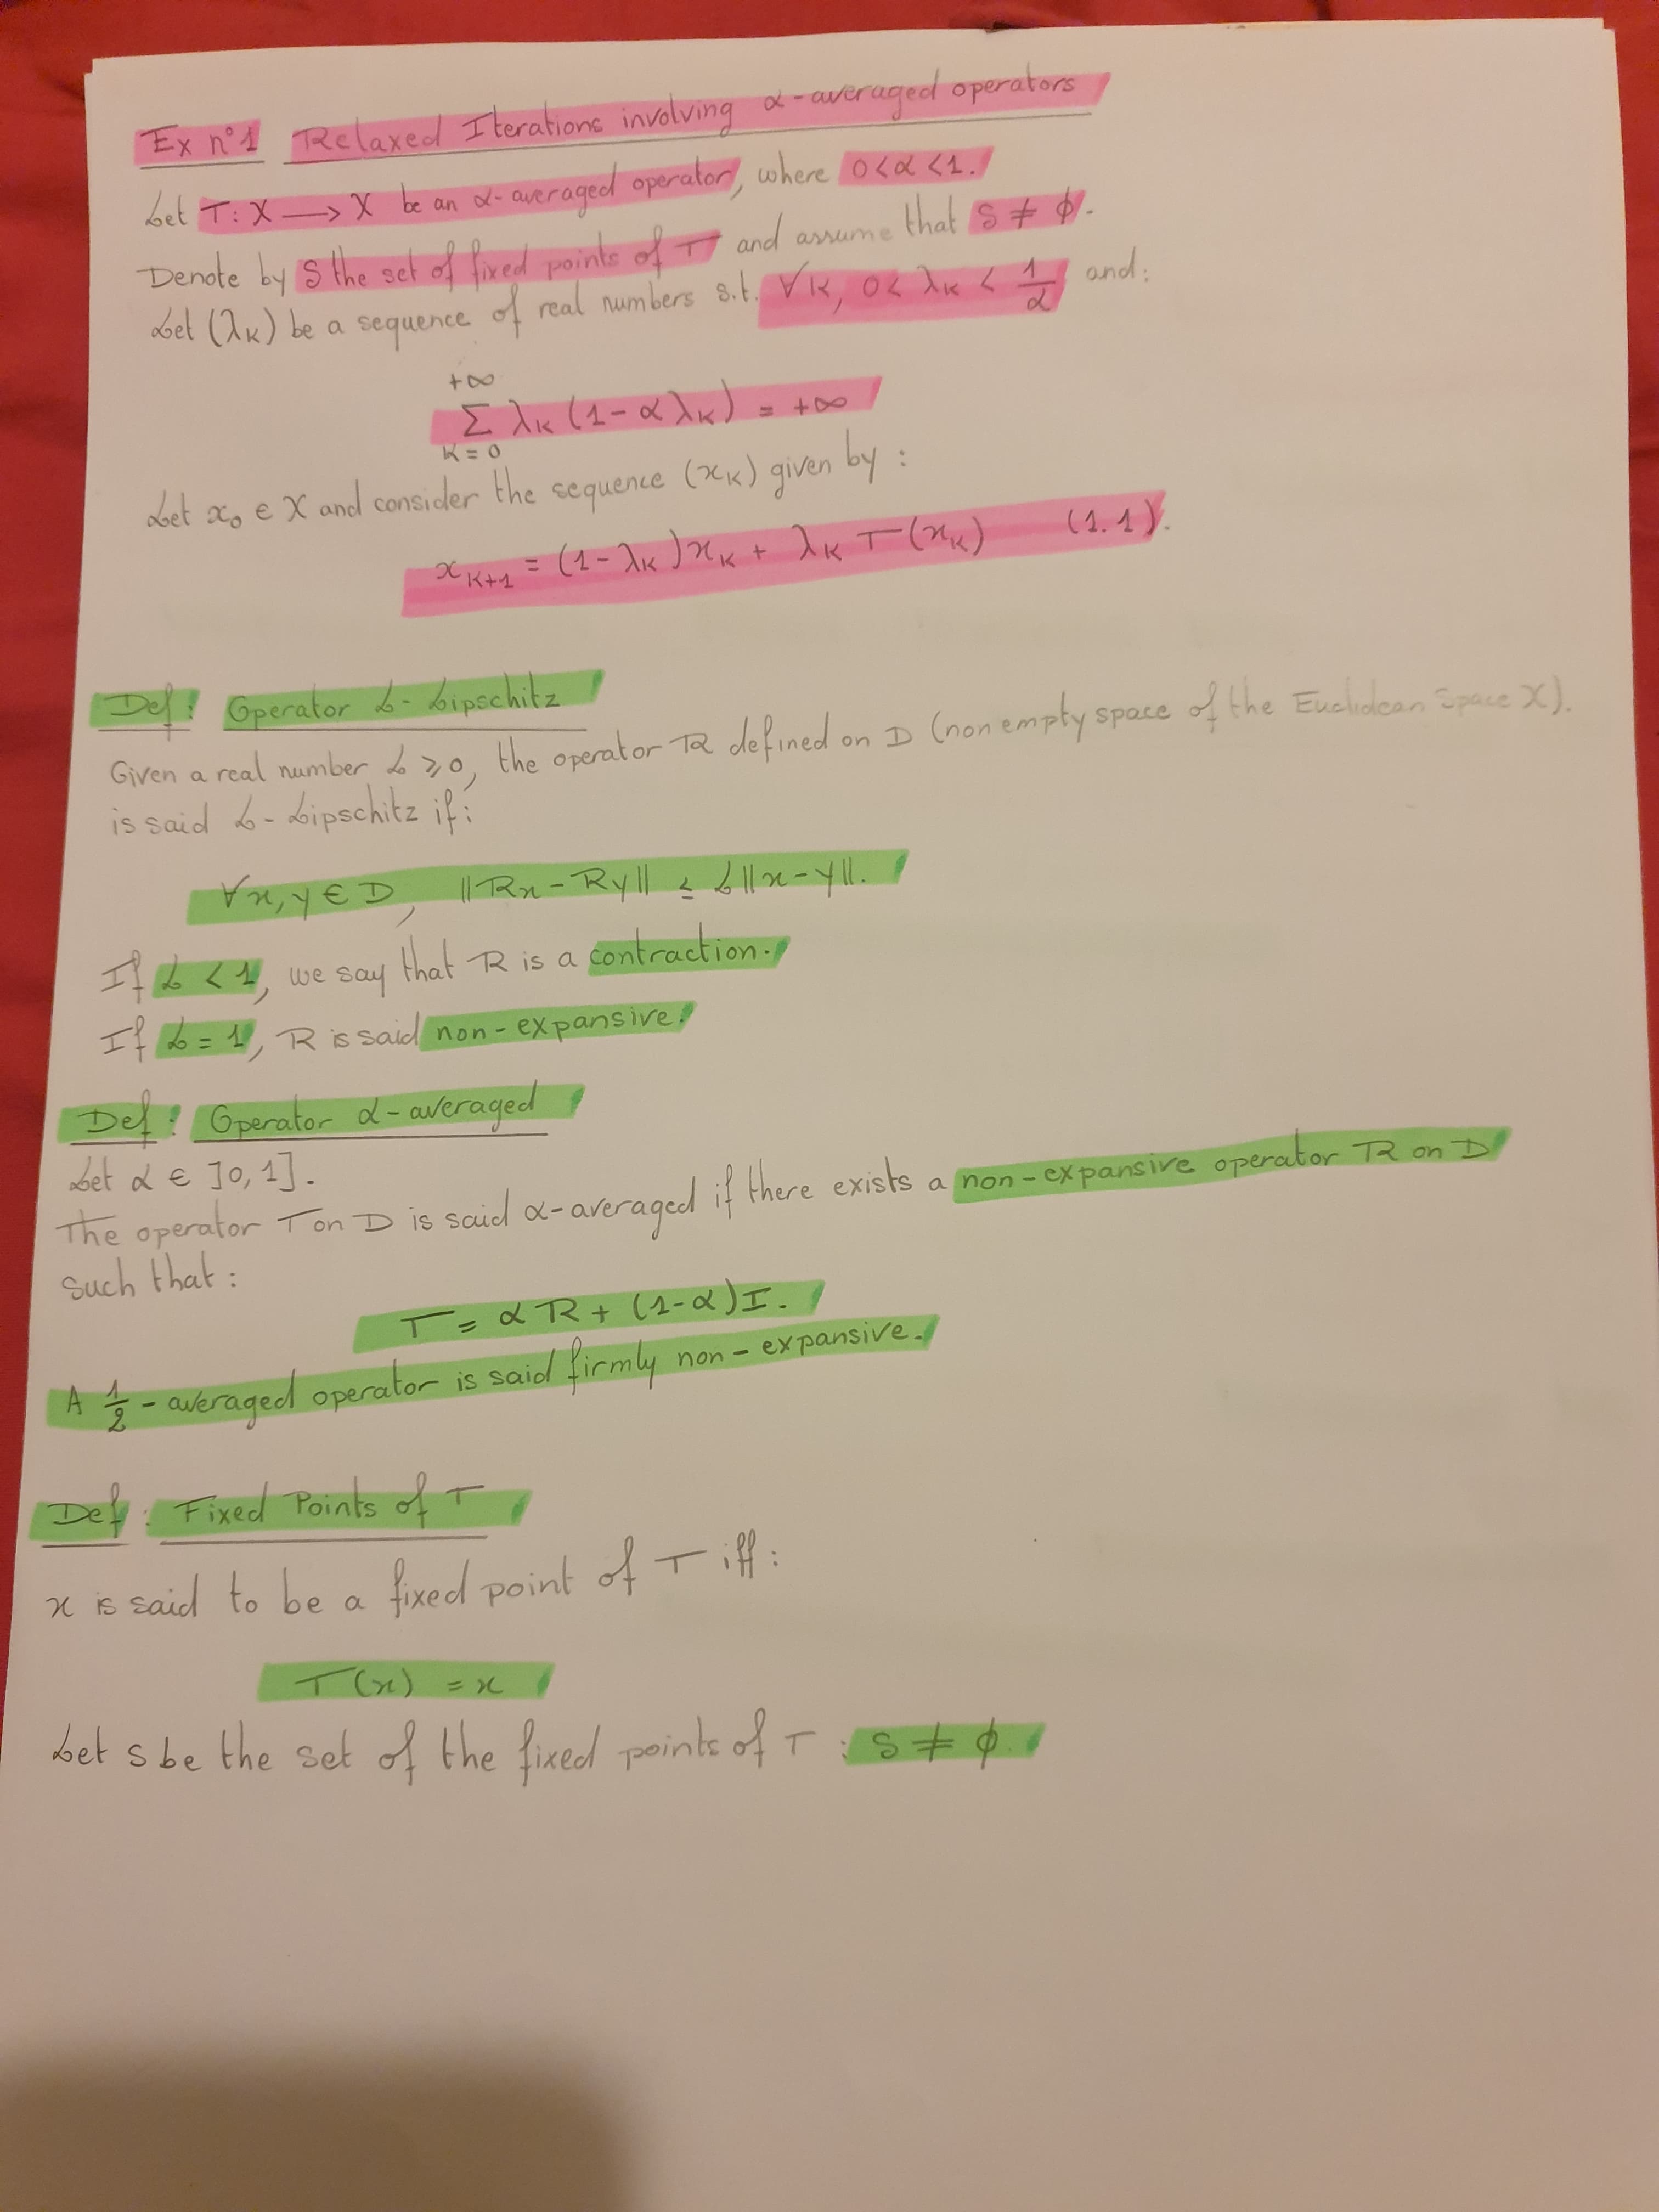 Ex n°1 Relaxed Iterations involving α-averaged operators
Let T: X ⟶ X be an α-averaged operator, where 0<α<1.
Denote by S the set of fixed points of T and assume that S ≠ ϕ.
Let (λₖ) be a sequence of real numbers s.t. ∀k, 0< λₖ < 1/α and:
+∞
Σ λₖ (1-αλₖ) = +∞
k=0
Let x₀ ∈ X and consider the sequence (xₖ) given by :
xₖ₊₁ = (1-λₖ)xₖ + λₖ T(xₖ) (1.1).
Def: Operator L-Lipschitz
Given a real number L ⩾ 0, the operator R defined on D (non empty space of the Euclidean Space X).
is said L-Lipschitz if:
∀x, y ∈ D, ||Rx - Ry|| ≤ L||x-y||.
If L < 1, we say that R is a contraction.
If L = 1, R is said non-expansive.
Def: Operator α-averaged
Let α ∈ ]0,1].
The operator T on D is said α-averaged if there exists a non-expansive operator R on D
such that :
T = αR + (1-α)I.
A 1/2 - averaged operator is said firmly non-expansive.
Def : Fixed Points of T
x is said to be a fixed point of T iff :
T(x) = x
Let S be the set of the fixed points of T : S ≠ ϕ.